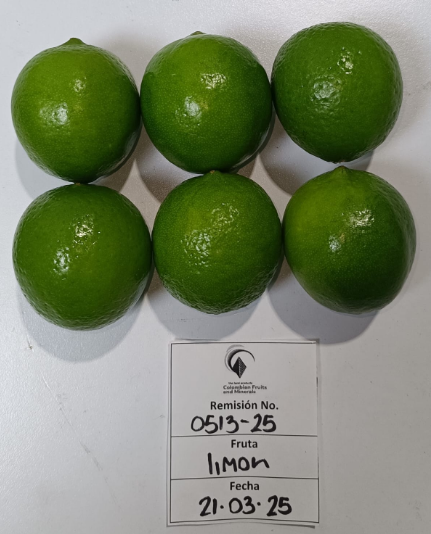 Colombian Fruits
and Minerals
Remisión No.
0513-25
Fruta
limon
Fecha
21·03·25